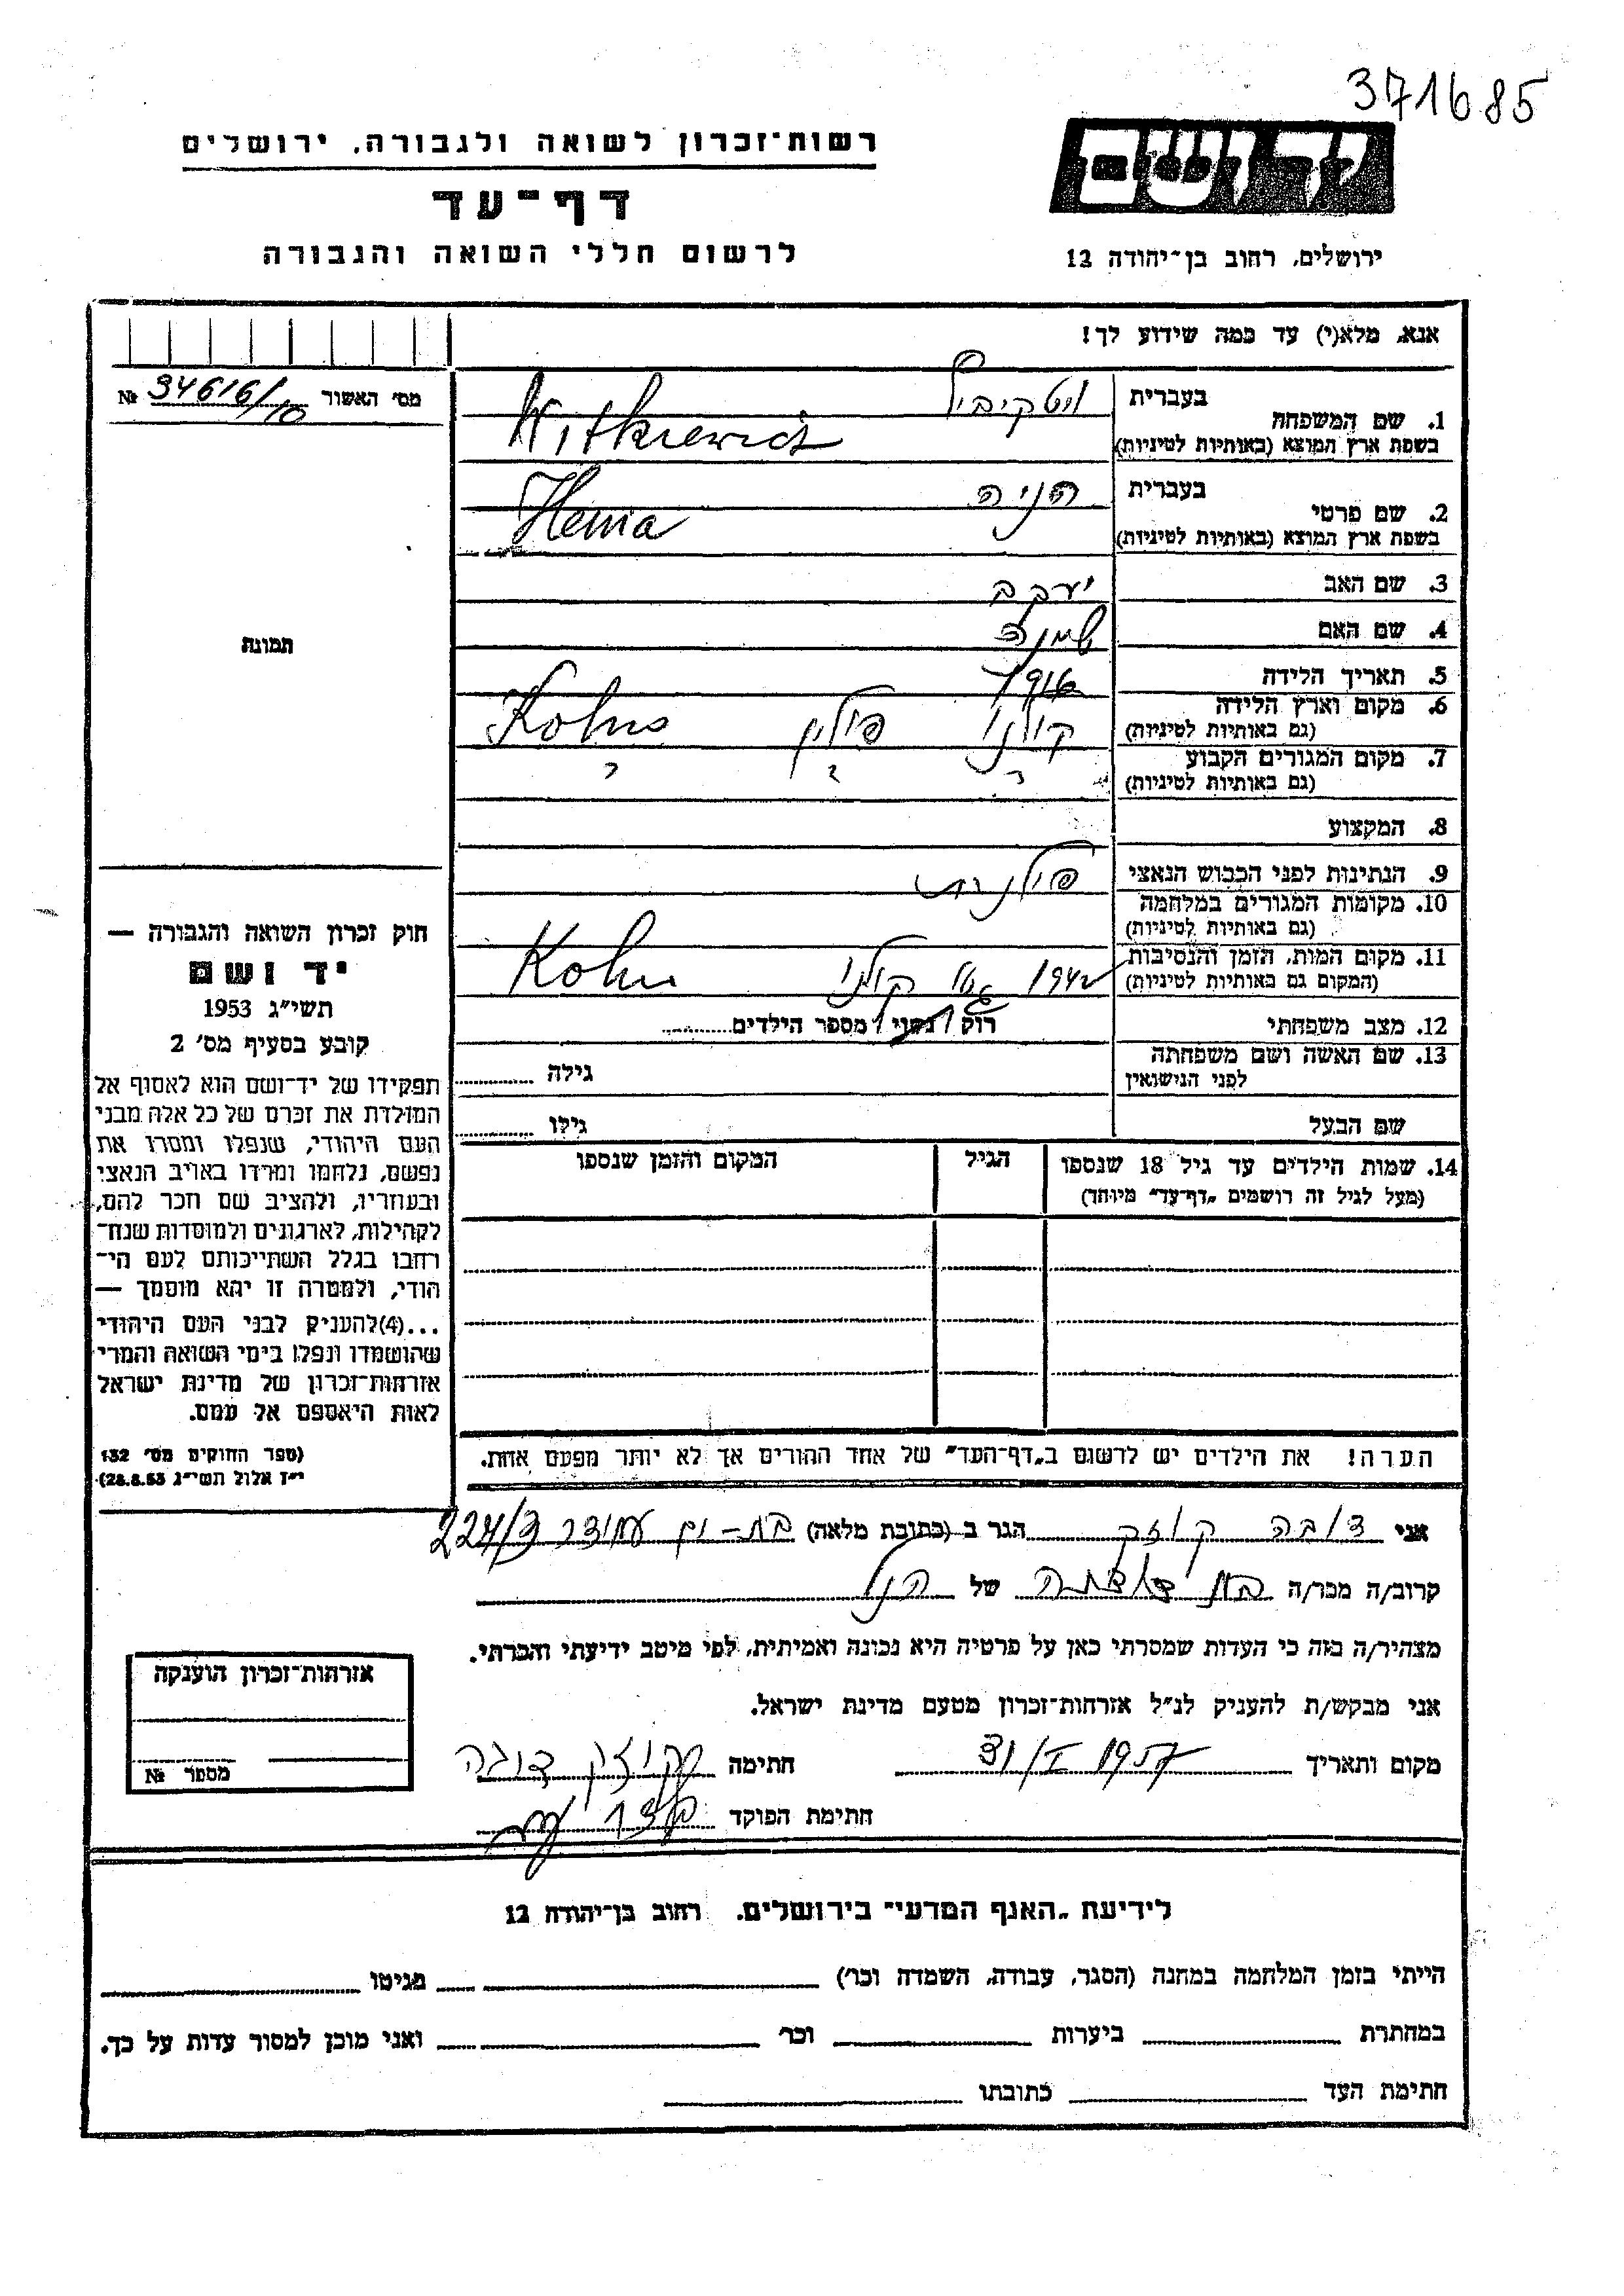 371685
יד ושם
רשות־זכרון לשואה ולגבורה, ירושלים
דף־עד
לרשום חללי השואה והגבורה
ירושלים, רחוב בן־יהודה 12
אנא, מלא(י) עד כמה שידוע לך!
מס׳ האשור 34616/10 №
1. שם המשפחה
בעברית
בשפת ארץ המוצא (באותיות לטיניות) Witkiewicz
2. שם פרטי
בעברית הניה
בשפת ארץ המוצא (באותיות לטיניות) Henia
3. שם האב יעקב
4. שם האם
5. תאריך הלידה
6. מקום וארץ הלידה
(גם באותיות לטיניות) קולנו פולין Kolno
7. מקום המגורים הקבוע
(גם באותיות לטיניות) ? ? ?
8. המקצוע
9. הנתינות לפני הכבוש הנאצי פולנית
10. מקומות המגורים במלחמה
(גם באותיות לטיניות)
11. מקום המות, הזמן והנסיבות
(המקום גם באותיות לטיניות) 1942 גטו קולנו Kolno
12. מצב משפחתי רוק / נשוי / מספר הילדים
13. שם האשה ושם משפחתה
לפני הנישואין גילה
שם הבעל גילו
14. שמות הילדים עד גיל 18 שנספו
(מעל לגיל זה רושמים „דף־עד״ מיוחד)
הגיל
המקום והזמן שנספו
הערה! את הילדים יש לרשום ב„דף־העד״ של אחד ההורים אך לא יותר מפעם אחת.
תמונה
חוק זכרון השואה והגבורה —
יד ושם
תשי״ג 1953
קובע בסעיף מס׳ 2
תפקידו של יד־ושם הוא לאסוף אל
המולדת את זכרם של כל אלה מבני
העם היהודי, שנפלו ומסרו את
נפשם, נלחמו ומרדו באויב הנאצי
ובעוזריו, ולהציב שם וזכר להם,
לקהילות, לארגונים ולמוסדות שנח־
רבו בגלל השתייכותם לעם הי־
הודי, ולמטרה זו יהא מוסמך —
...(4)להעניק לבני העם היהודי
שהושמדו ונפלו בימי השואה והמרי
אזרחות־זכרון של מדינת ישראל
לאות היאספם אל עמם.
(ספר החוקים מס׳ 132
י״ז אלול תשי״ג 28.8.53)
אני קוזק הגר ב (כתובת מלאה) בת־ים עמידר 224/3
קרוב/ה מכר/ה בת דודתה של הנ״ל
מצהיר/ה בזה כי העדות שמסרתי כאן על פרטיה היא נכונה ואמיתית, לפי מיטב ידיעתי והכרתי.
אני מבקש/ת להעניק לנ״ל אזרחות־זכרון מטעם מדינת ישראל.
מקום ותאריך 1957 חתימה קוזק
חתימת הפוקד
אזרחות־זכרון הוענקה
מספר №
לידיעת „האגף המדעי״ בירושלים, רחוב בן־יהודה 12
הייתי בזמן המלחמה במחנה (הסגר, עבודה, השמדה וכו׳) בגיטו
במחתרת ביערות וכו׳ ואני מוכן למסור עדות על כך.
חתימת העד כתובתו